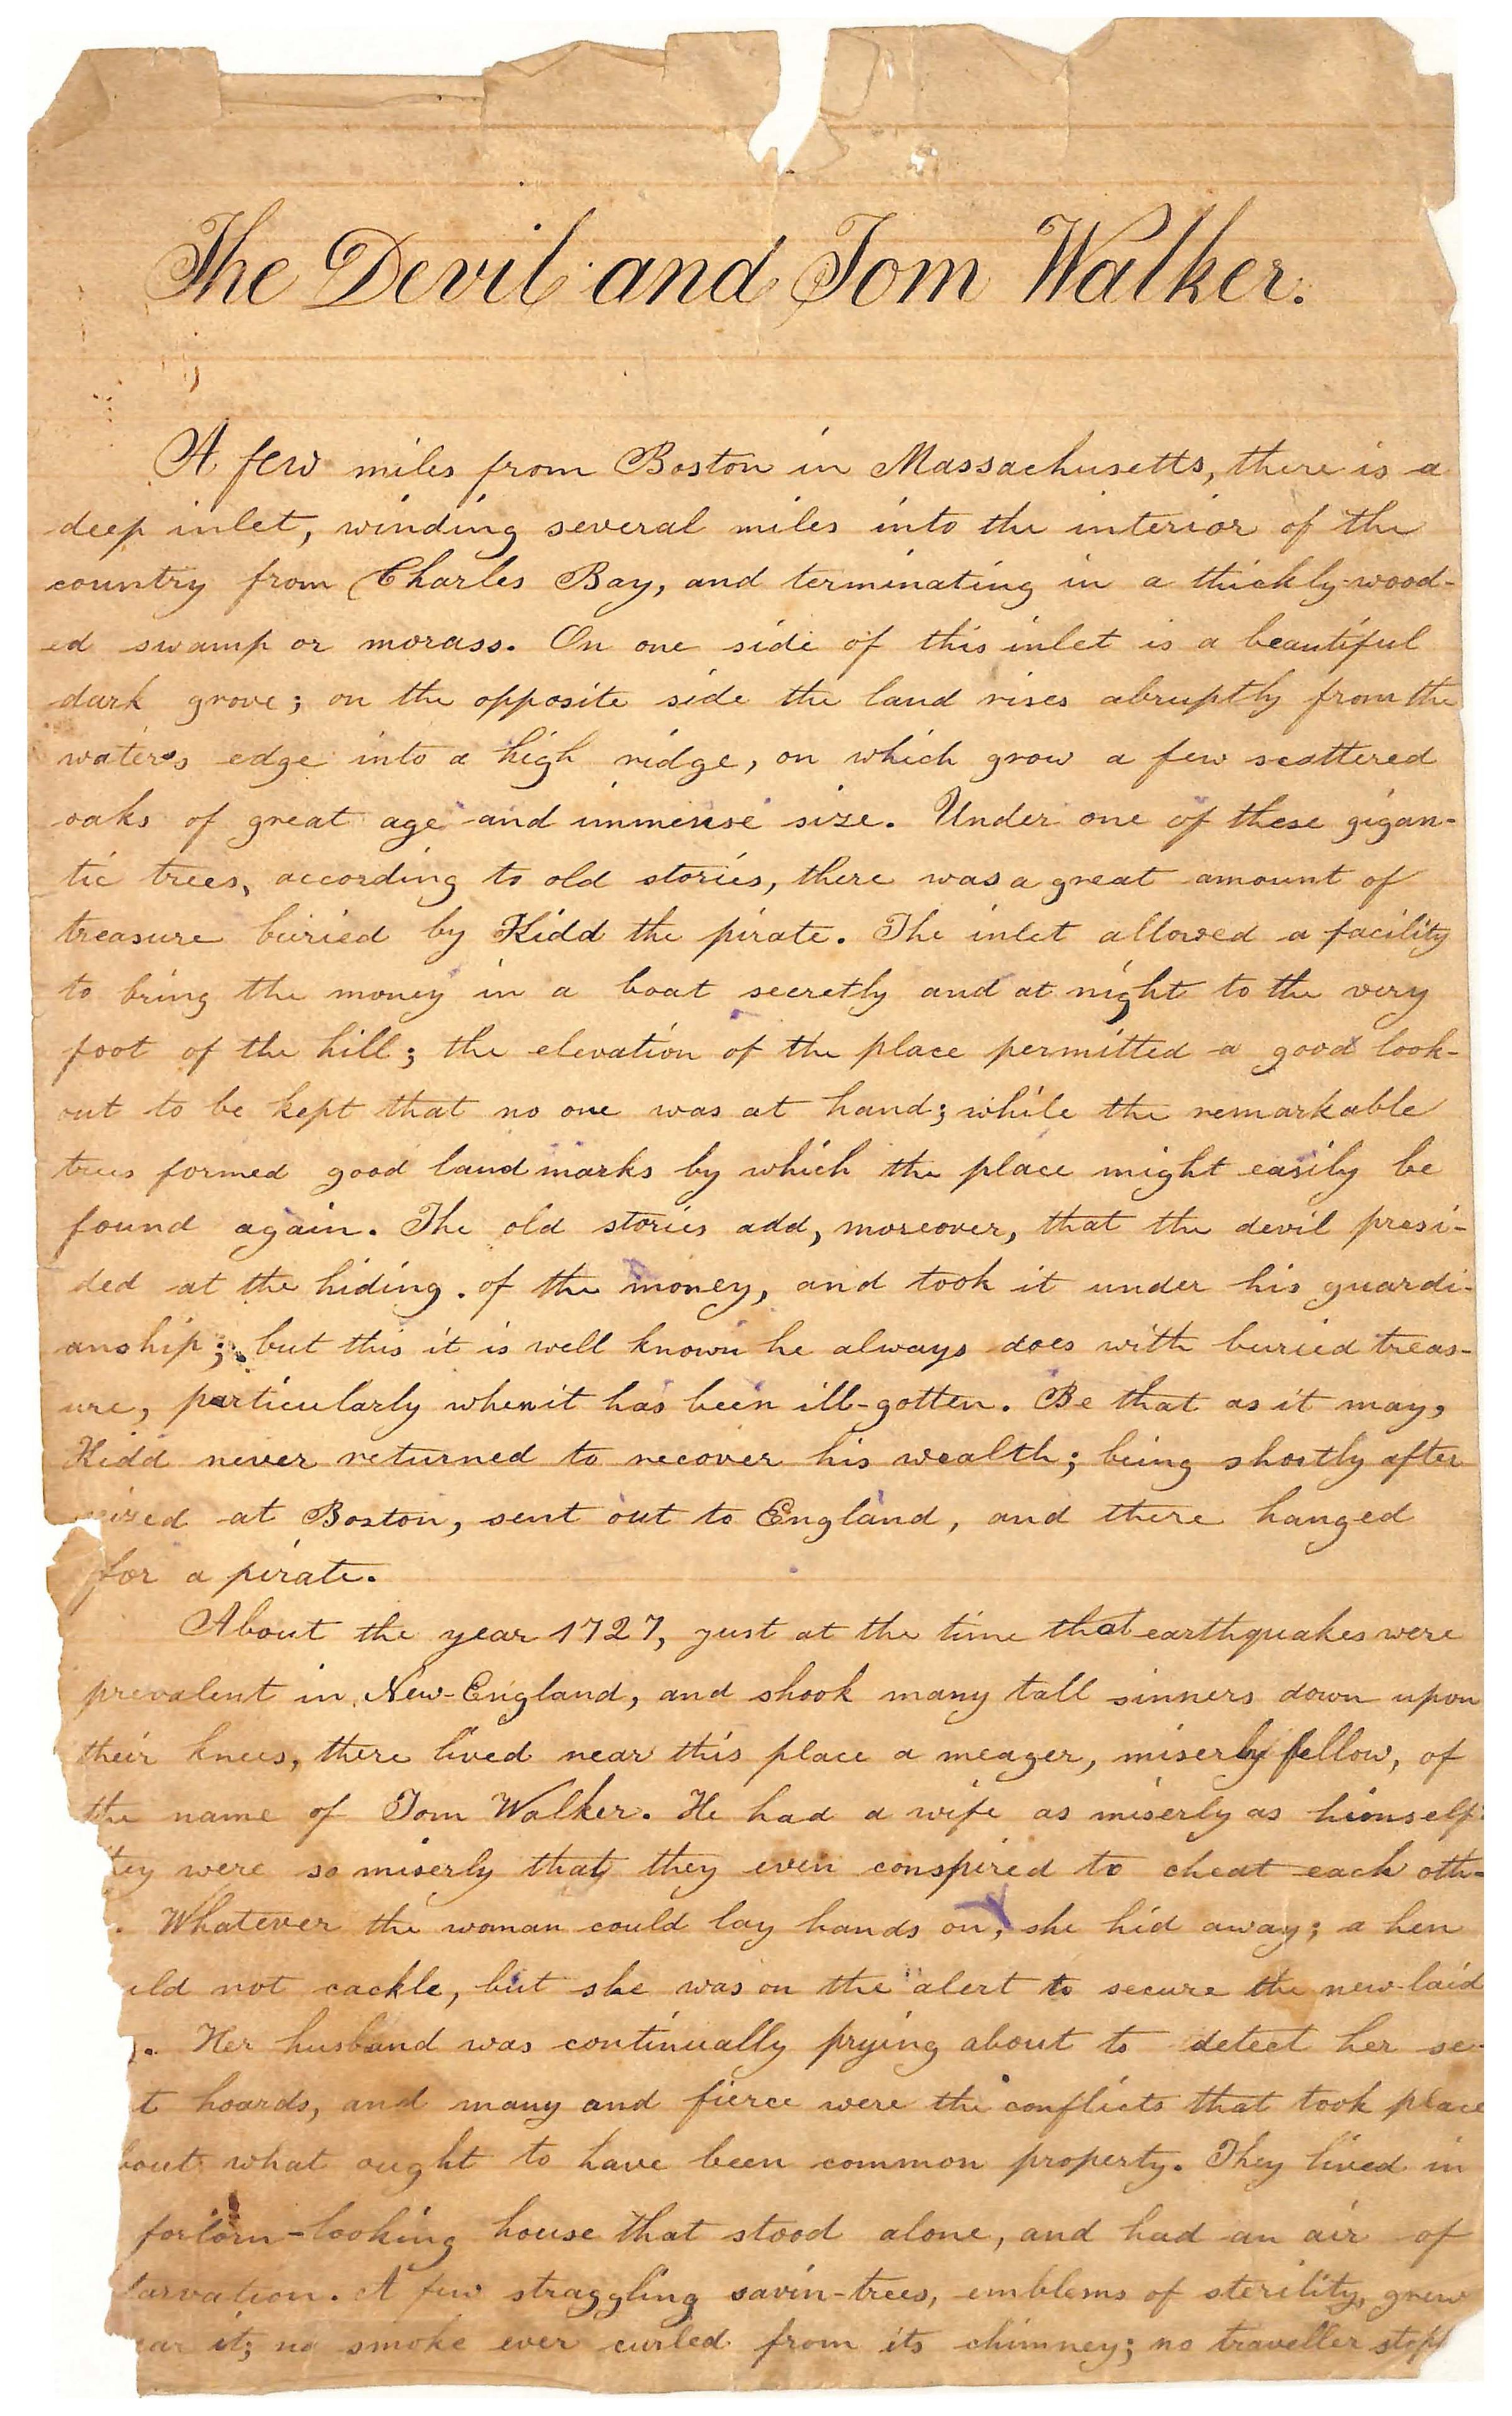 The Devil and Tom Walker.
A few miles from Boston in Massachusetts, there is a
deep inlet, winding several miles into the interior of the
country from Charles Bay, and terminating in a thickly-wood-
ed swamp or morass. On one side of this inlet is a beautiful
dark grove; on the opposite side the land rises abruptly from the
waters edge into a high ridge, on which grow a few scattered
oaks of great age and immense size. Under one of these gigan-
tic trees, according to old stories, there was a great amount of
treasure buried by Kidd the pirate. The inlet allowed a facility
to bring the money in a boat secretly and at night to the very
foot of the hill; the elevation of the place permitted a good look-
out to be kept that no one was at hand; while the remarkable
trees formed good landmarks by which the place might easily be
found again. The old stories add, moreover, that the devil presi-
ded at the hiding of the money, and took it under his guardi-
anship; but this it is well known he always does with buried treas-
ure, particularly when it has been ill-gotten. Be that as it may,
Kidd never returned to recover his wealth; being shortly after
eized at Boston, sent out to England, and there hanged
for a pirate.
About the year 1727, just at the time that earthquakes were
prevalent in New-England, and shook many tall sinners down upon
their knees, there lived near this place a meager, miserly fellow, of
the name of Tom Walker. He had a wife as miserly as himself:
hey were so miserly that they even conspired to cheat each oth-
. Whatever the woman could lay hands on, she hid away; a hen
uld not cackle, but she was on the alert to secure the new-laid
. Her husband was continually prying about to detect her se-
t hoards, and many and fierce were the conflicts that took place
bout what ought to have been common property. They lived in
forlorn-looking house that stood alone, and had an air of
tarvation. A few straggling savin-trees, emblems of sterility, grew
ear it; no smoke ever curled from its chimney; no traveller stopt